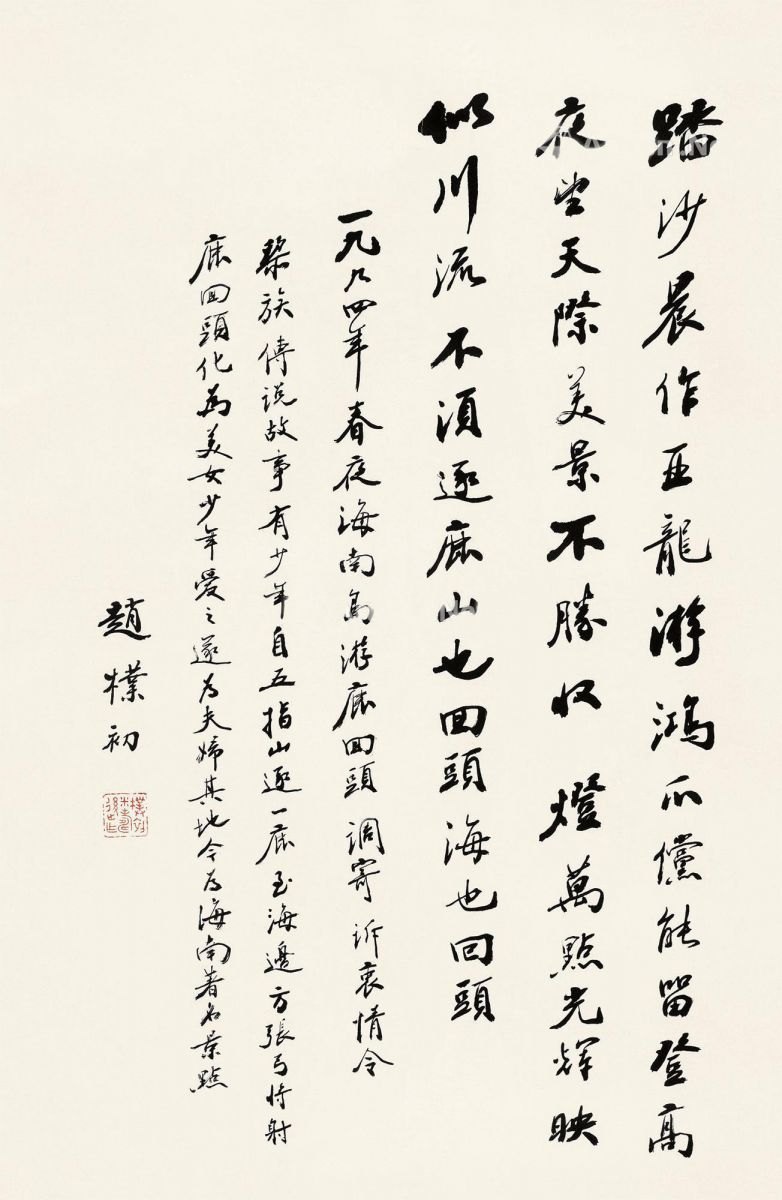 踏沙晨作亞龍游鴻爪儻能留登高
夜望天際美景不勝收 燈萬點光輝映
似川流不須逐鹿山也回頭海也回頭
一九八四年春夜海南島游鹿回頭 調寄 訴衷情令
黎族傳說故事有少年自五指山逐一鹿至海邊方張弓將射
鹿回頭化為美女少年愛之遂為夫婦其地今為海南著名景點
趙樸初